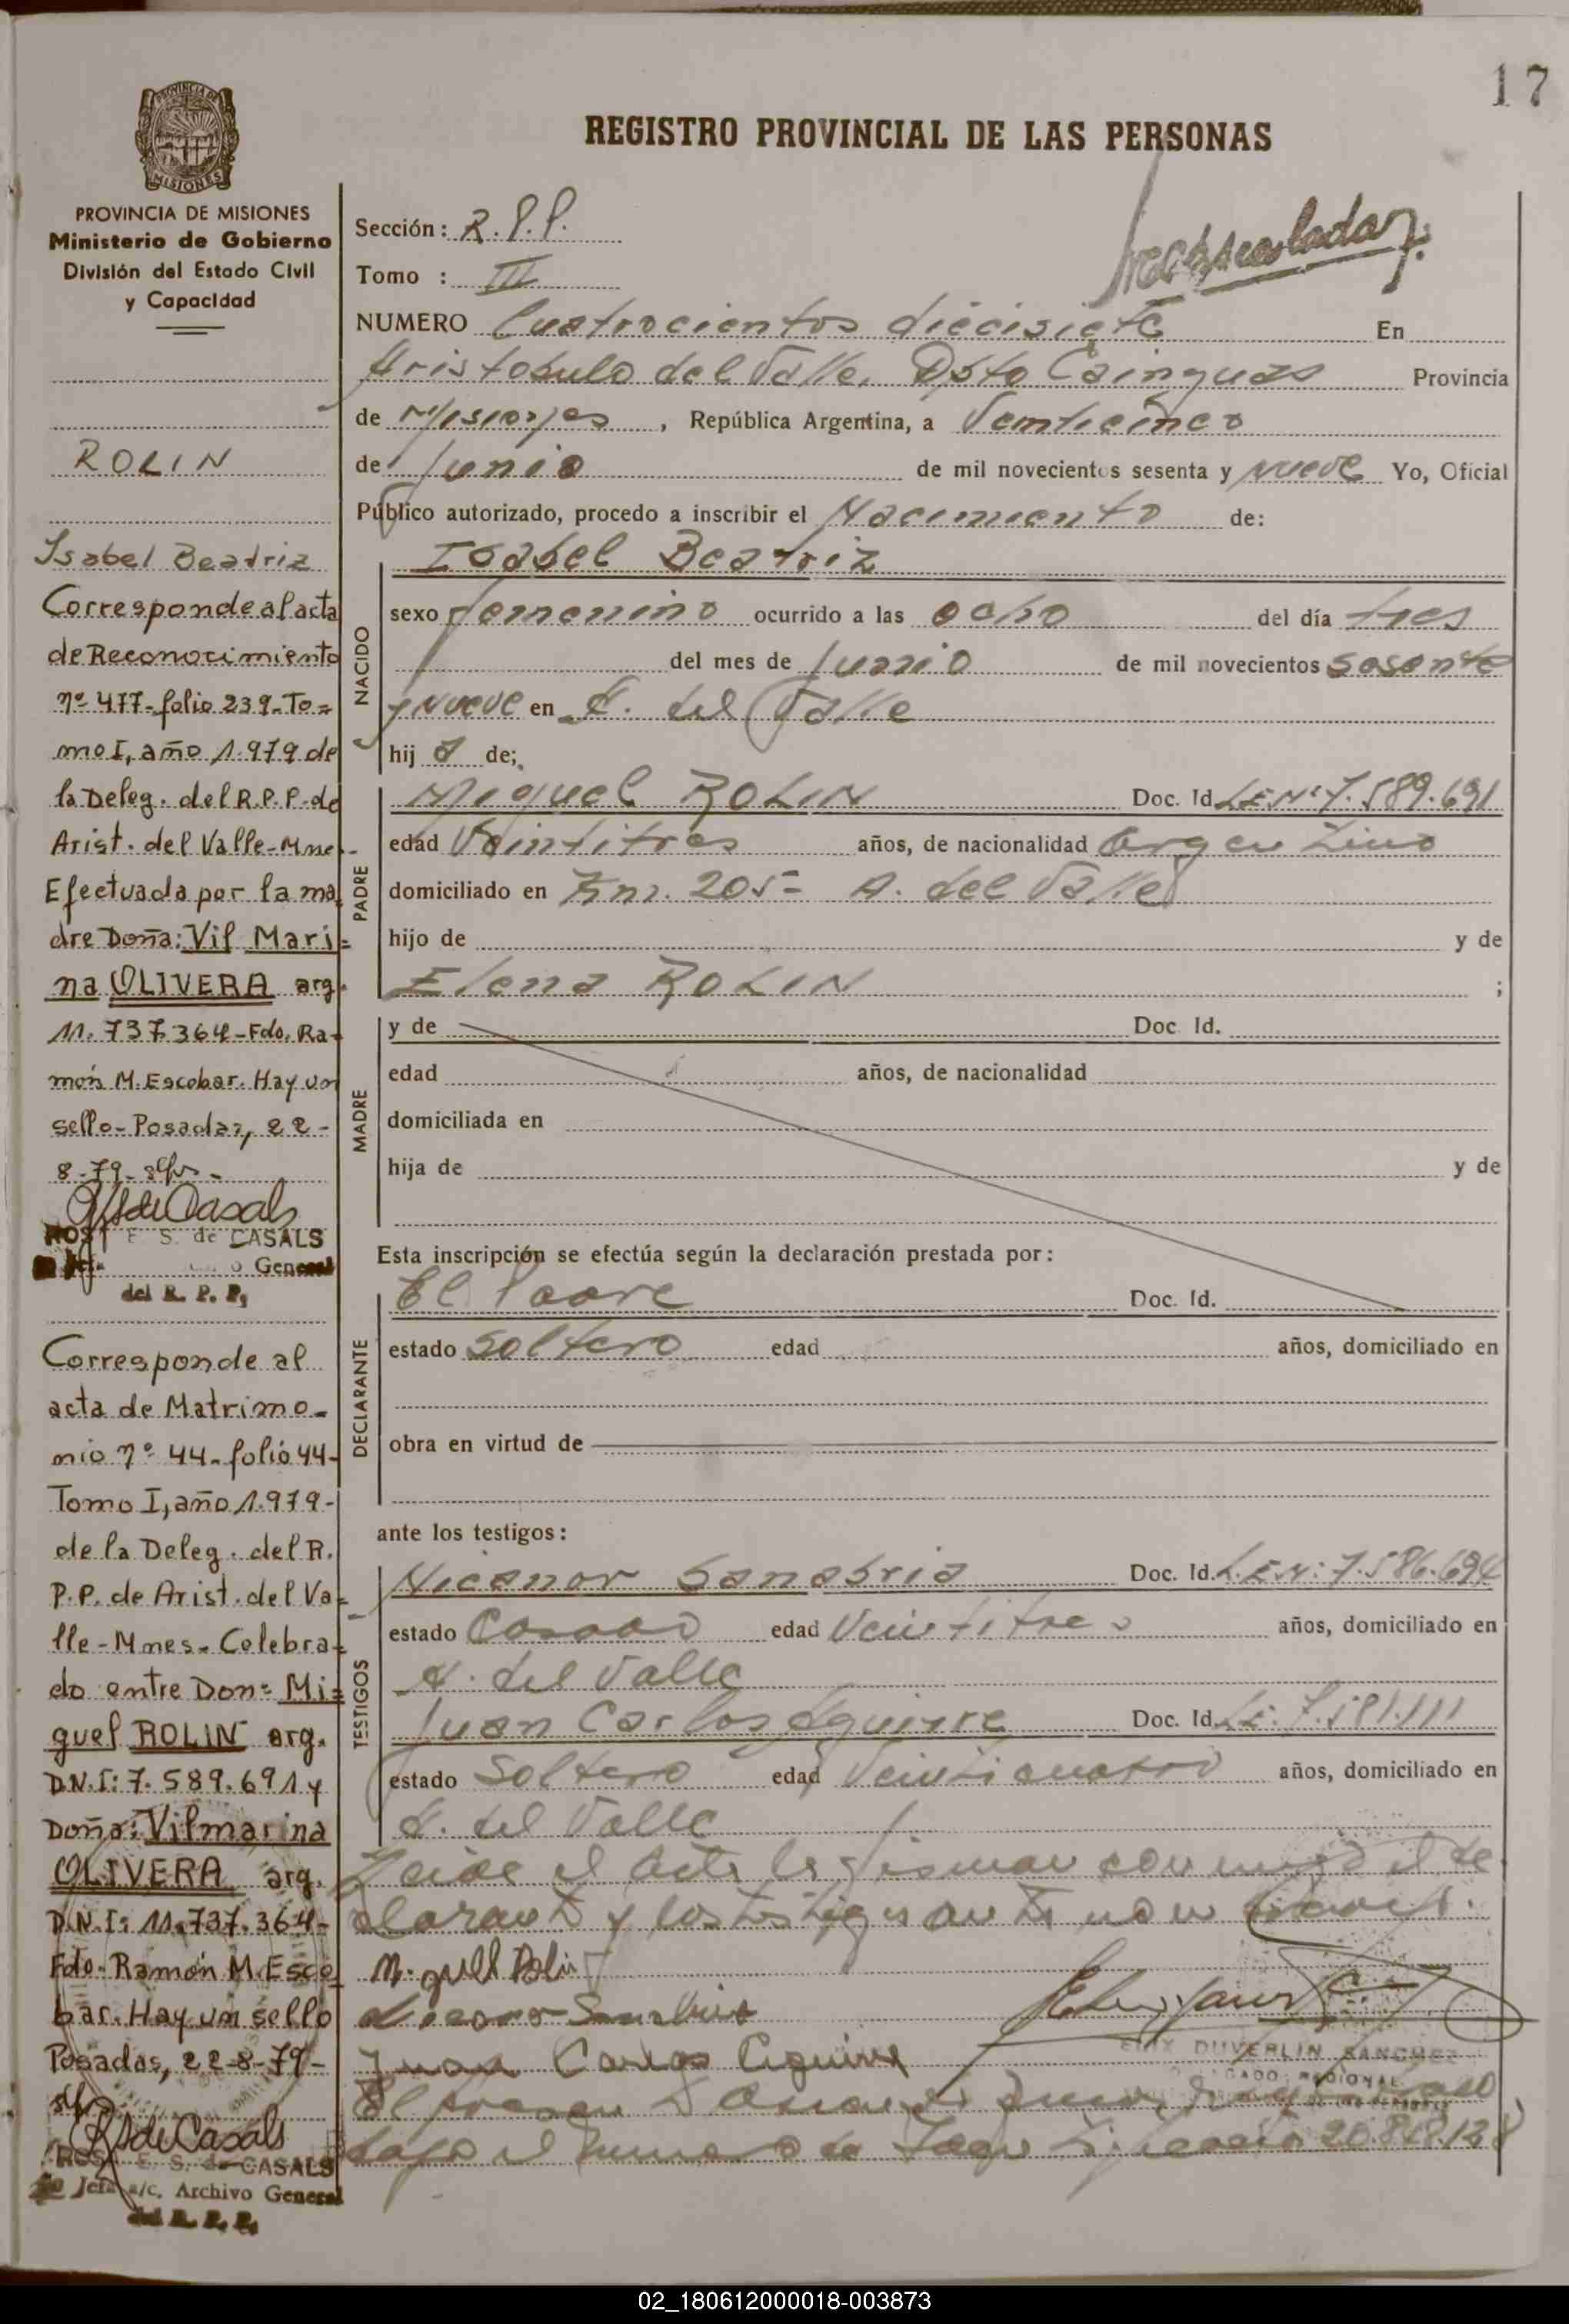 17
PROVINCIA DE
MISIONES
REGISTRO PROVINCIAL DE LAS PERSONAS
PROVINCIA DE MISIONES
Ministerio de Gobierno
División del Estado Civil
y Capacidad
ROLIN
Isabel Beatriz
Corresponde al acta
de Reconocimiento
nº 477-folio 239-To=
mo I, año 1.979 de
la Deleg. del R.P.P. de
Arist. del Valle-Mnes-
Efectuada por la ma
dre Doña: Vil Mari=
na OLIVERA arg.
11.737.364-Fdo. Ra-
món M. Escobar. Hay un
sello-Posadas, 22-
8-79-
E. S. de CASALS
General
del R. P. P.
Corresponde al
acta de Matrimo-
nio nº 44-folio 44-
Tomo I, año 1.979-
de la Deleg. del R.
P.P. de Arist. del Va=
lle-Mnes-Celebra=
do entre Don= Mi=
guel ROLIN arg.
D.N.I: 7.589.691 y
Doña: Vilmarina
OLIVERA arg.
D.N.I: 11.737.364-
Fdo-Ramón M. Esco
bar. Hay un sello
Posadas, 22-8-79-
E. S. de CASALS
Jefa a/c. Archivo General
del R. P. P.
Sección: R.P.P.
Tomo : III
NUMERO Cuatrocientos diecisiete En
Aristobulo del Valle, Dpto Cainguas Provincia
de Misiones, República Argentina, a Veinticinco
de Junio de mil novecientos sesenta y nueve Yo, Oficial
Público autorizado, procedo a inscribir el Nacimiento de:
NACIDO
Isabel Beatriz
sexo femenino ocurrido a las ocho del día tres
del mes de Junio de mil novecientos sesenta
y nueve en A. del Valle
hij a de;
PADRE
Miguel ROLIN Doc. Id. L.E.Nº 7.589.691
edad Veintitres años, de nacionalidad argentino
domiciliado en Km. 205- A. del Valle
hijo de y de
Elena ROLIN ;
MADRE
y de Doc. Id.
edad años, de nacionalidad
domiciliada en
hija de y de
Esta inscripción se efectúa según la declaración prestada por:
DECLARANTE
El Padre Doc. Id.
estado Soltero edad años, domiciliado en
obra en virtud de
ante los testigos:
TESTIGOS
Nicanor Sanabria Doc. Id. L.E.N: 7.586.694
estado Casado edad Veintitres años, domiciliado en
A. del Valle
Juan Carlos Aguirre Doc. Id. L.E. 7.581.111
estado Soltero edad Veinticuatro años, domiciliado en
A. del Valle
Leida el acta la firman con migo el de
clarante y los testigos
Miguel Rolin
Juan Carlos Aguirre
DUVERLIN SANCHEZ
02_180612000018-003873